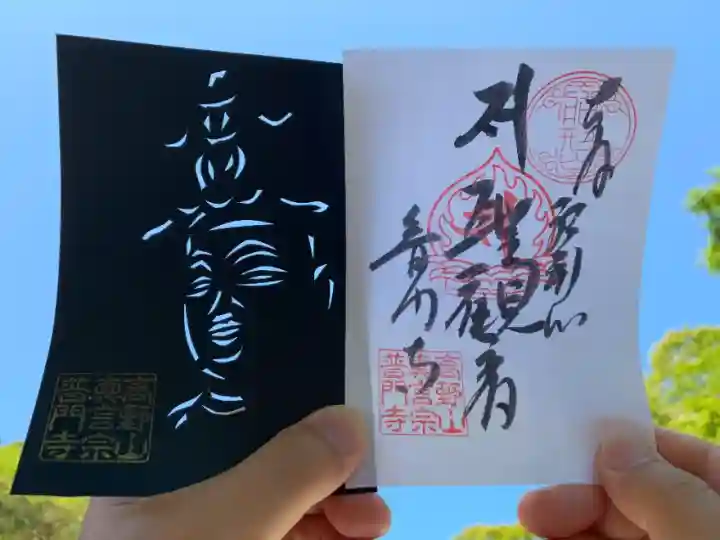 奉拝
船形山
聖観音
普門寺
高野山
真言宗
普門寺
高野山
真言宗
普門寺